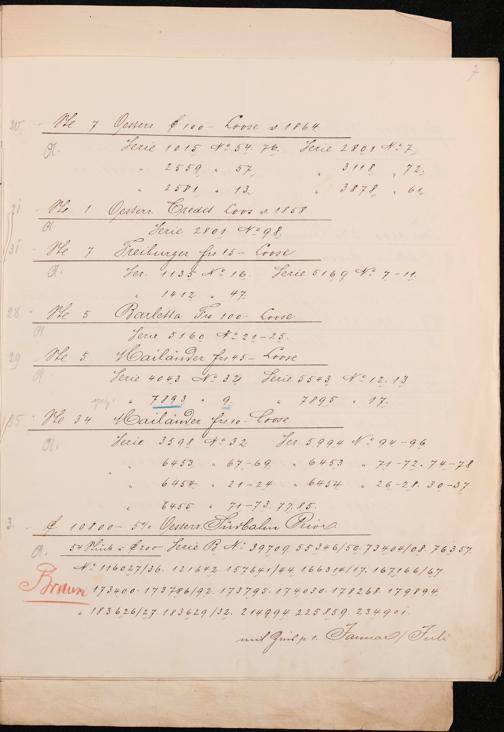 7
30 Stk 7 Oesterr. f 100- Loose v. 1864
A. Serie 1015 No 54. 76. Serie 2801 No 7.
" 2559 " 57. " 3118 " 72.
" 2581 " 13. " 3878 " 61.
31 Stk 1 Oesterr. Credit Loos v. 1858
A Serie 2801 No 98.
31 Stk 7 Freiburger frs 15- Loose
A. Ser. 1135 No 16. Serie 5169 No 7-11.
" 1412 " 47.
28 Stk 5 Barletta Frs 100- Loose
A Serie 5160 No 21-25.
29 Stk 5 Mailänder frs 45- Loose
A Serie 4043 No 34 Serie 5543 No 12. 13
" 7893 " 9. " 7895 " 17.
35 Stk 34 Mailänder frs 10- Loose
A. Serie 3591 No 32 Ser. 5994 No 94-96
" 6453 " 67-69 " 6453 " 71-72. 74-78
" 6454 " 21-24 " 6454 " 26-28. 30-37
" 6455 " 71-73. 77. 85.
3. f 10800- 5% Oesterr. Südbahn Prior
A. 54 Stück à f 200 Serie B No 39709. 55346/50. 73404/08. 76357.
No 116027/36. 121642. 157641/44. 166314/17. 167166/67.
Braun 173400. 173786/92. 173795. 174030. 178268. 179894.
" 183626/27. 183629/32. 214994. 225859. 234901.
mit Zins p. 1. Januar / Juli